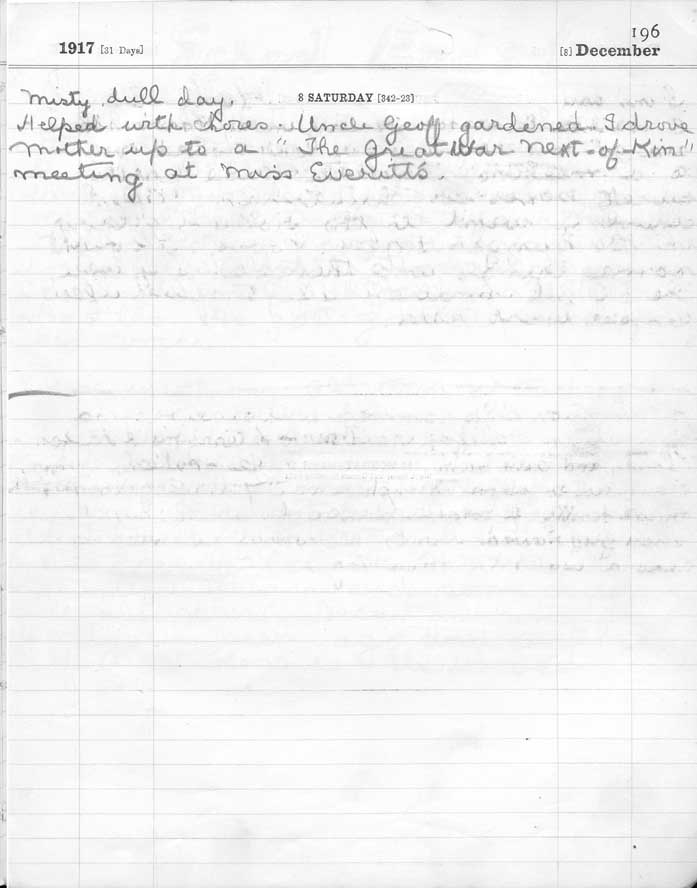 196
1917 [31 Days] [8] December
8 SATURDAY [342-23]
Misty dull day.
Helped with chores. Uncle Geoff gardened. I drove
Mother up to a "The Great War Next-of-Kin"
meeting at Miss Everitts.